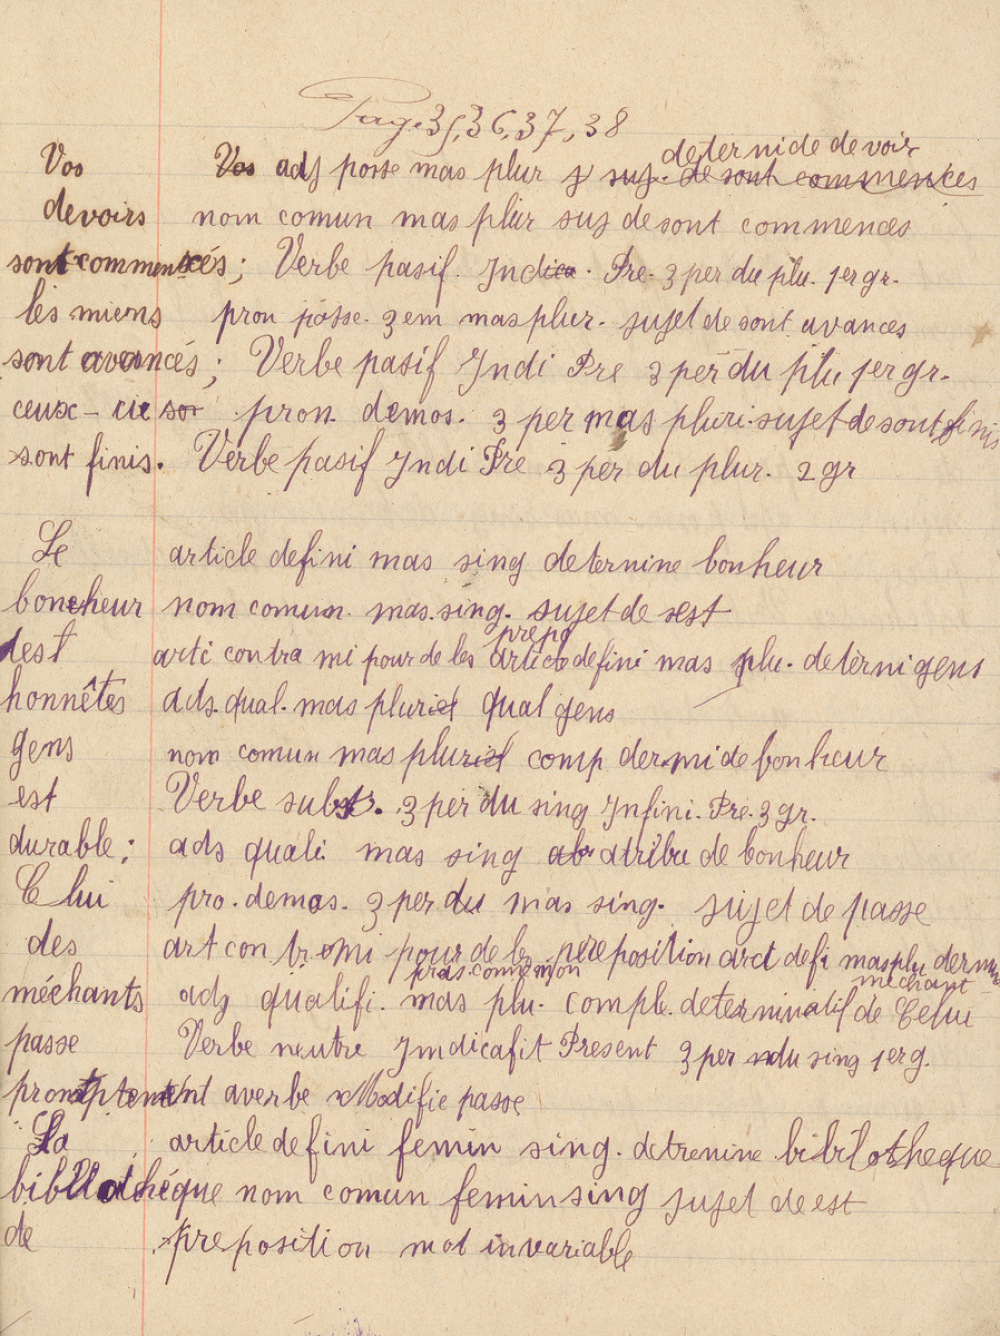 Page 35, 36, 37, 38
Vos Vos adj posse mas plur deternide devoir
devoirs nom comun mas plur suj de sont commences
sont commencés; Verbe pasif. Indica. Pre. 3 per du plu. 1er gr.
les miens pron posse. 3 em mas plur. sujet de sont avances
sont avancés; Verbe pasif Indi Pre 3 per du plu 1er gr.
ceux-cie pron demos. 3 per mas pluri. sujet de sont finis
sont finis. Verbe pasif Indi Pre 3 per du plur. 2 gr
Le article defini mas sing deternine bonheur
boncheur nom comun. mas. sing. sujet de sest
prepo
dest arti contra mi pour de les article defini mas plu. deterni gens
honnêtes ads. qual. mas pluriel qual gens
gens nom comun mas pluriel comp dermi de bonheur
est Verbe subst. 3 per du sing Infini. Pre. 3 gr.
durable; ads quali mas sing atribu de bonheur
Clui pro. demos. 3 per du mas sing. sujet de passe
des art con tromi pour de les preposition arct defi mas plu
méchant
méchants adj qualifi. mas plu. comple. determinatif de Celui
passe Verbe neutre Imdicafit Present 3 per du sing 1er g.
promptement averbe Modifie passe
La article defini femin sing. detrenine bibilotheque
bibllothéque nom comun femin sing sujet de est
de preposition mot invariable